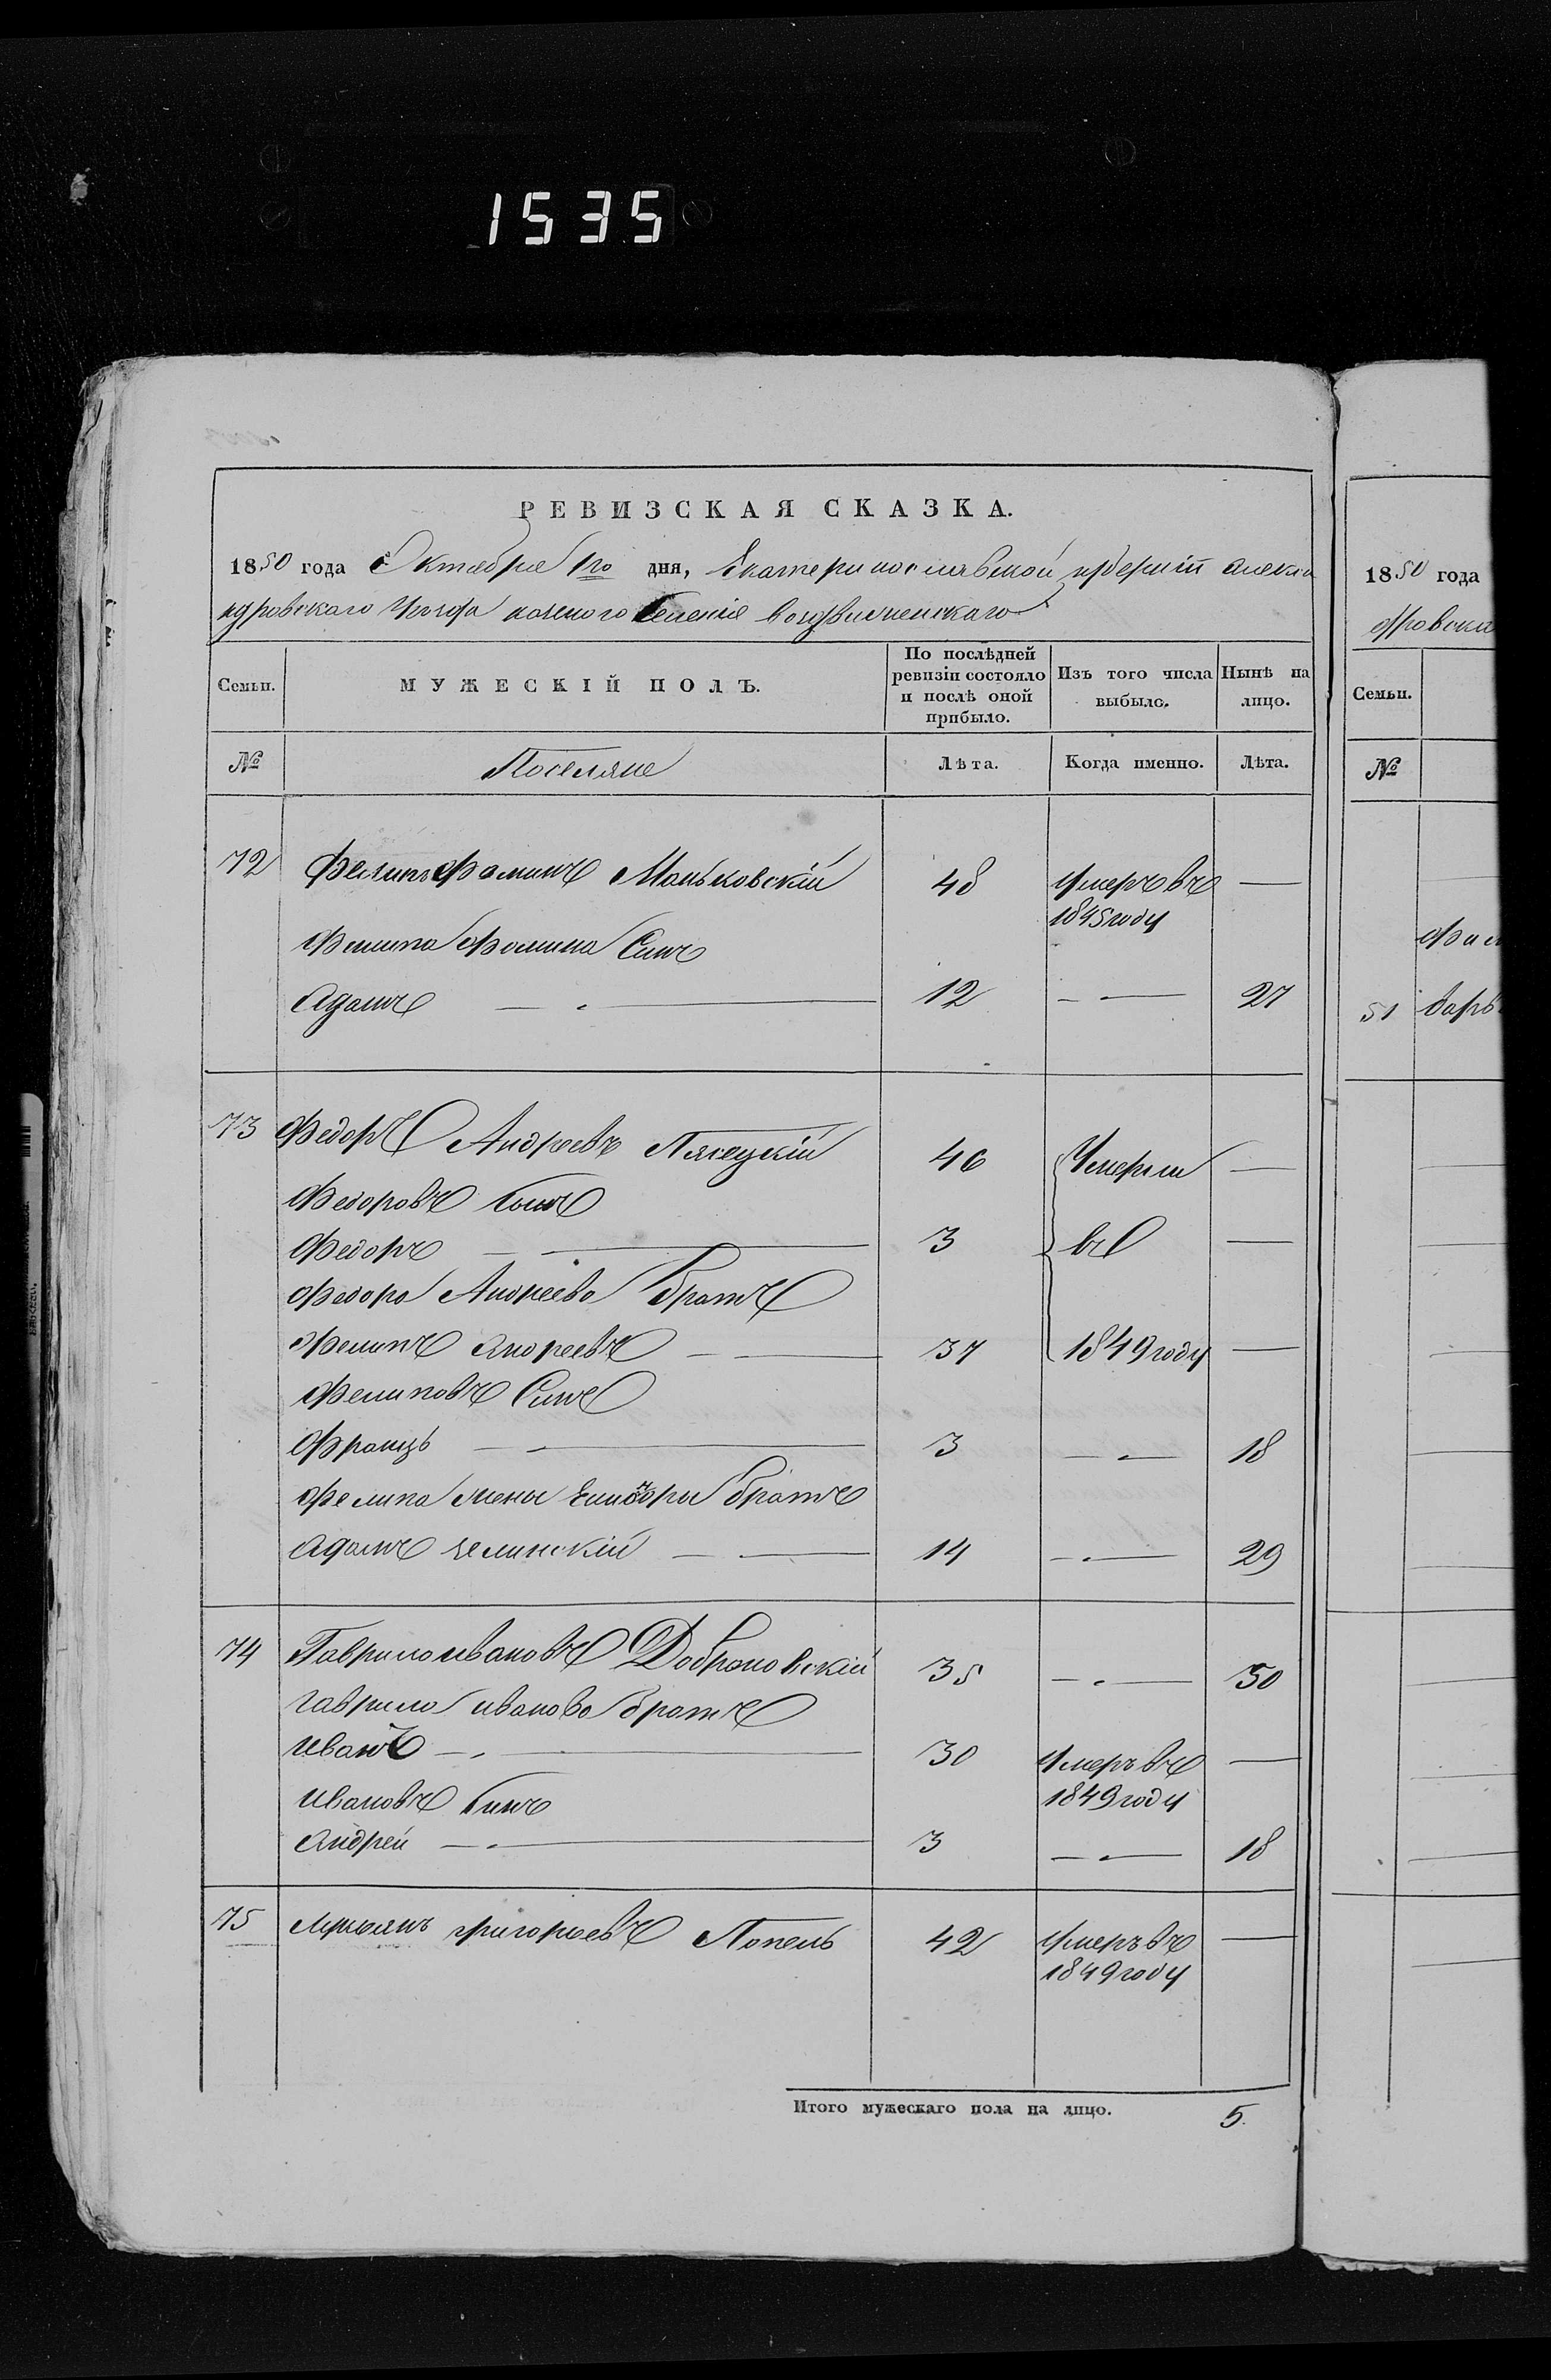 1535
РЕВИЗСКАЯ СКАЗКА.
1850 года Октября 1го дня, Екатеринославской губерніи Алекса
ндровскаго уезда казенного селенія Воздвиженскаго
Семьи.
МУЖЕСКІЙ ПОЛЪ.
По послѣдней ревизіи состояло и послѣ оной прибыло.
Изъ того числа выбыло.
Нынѣ на лицо.
№ Поселяне Лѣта. Когда именно. Лѣта.
72 Фелипъ Фоминъ Маньковскій 48 Умеръ въ —
1845 году
Фелипа Фомина Синъ
Адамъ — 12 — 27
73 Федоръ Андреевъ Лясецкій 46 Умерли —
Федоровъ сынъ
Федоръ — 3 въ —
Федора Андреева братъ
Фелипъ Андреевъ — 37 1849 году —
Фелиповъ Синъ
Францъ — 3 — 18
Фелипа жены братъ
Адамъ Зелинскій — 14 — 29
74 Гаврило Ивановъ Доброновскій 35 — 50
Гаврила Иванова братъ
Иванъ — 30 Умеръ въ —
1849 году
Ивановъ Синъ
Андрей — 3 — 18
75 Григорьевъ Попель 42 Умеръ въ —
1849 году
Итого мужескаго пола на лицо. 5.
1850 года
дровска
Семьи.
№
51